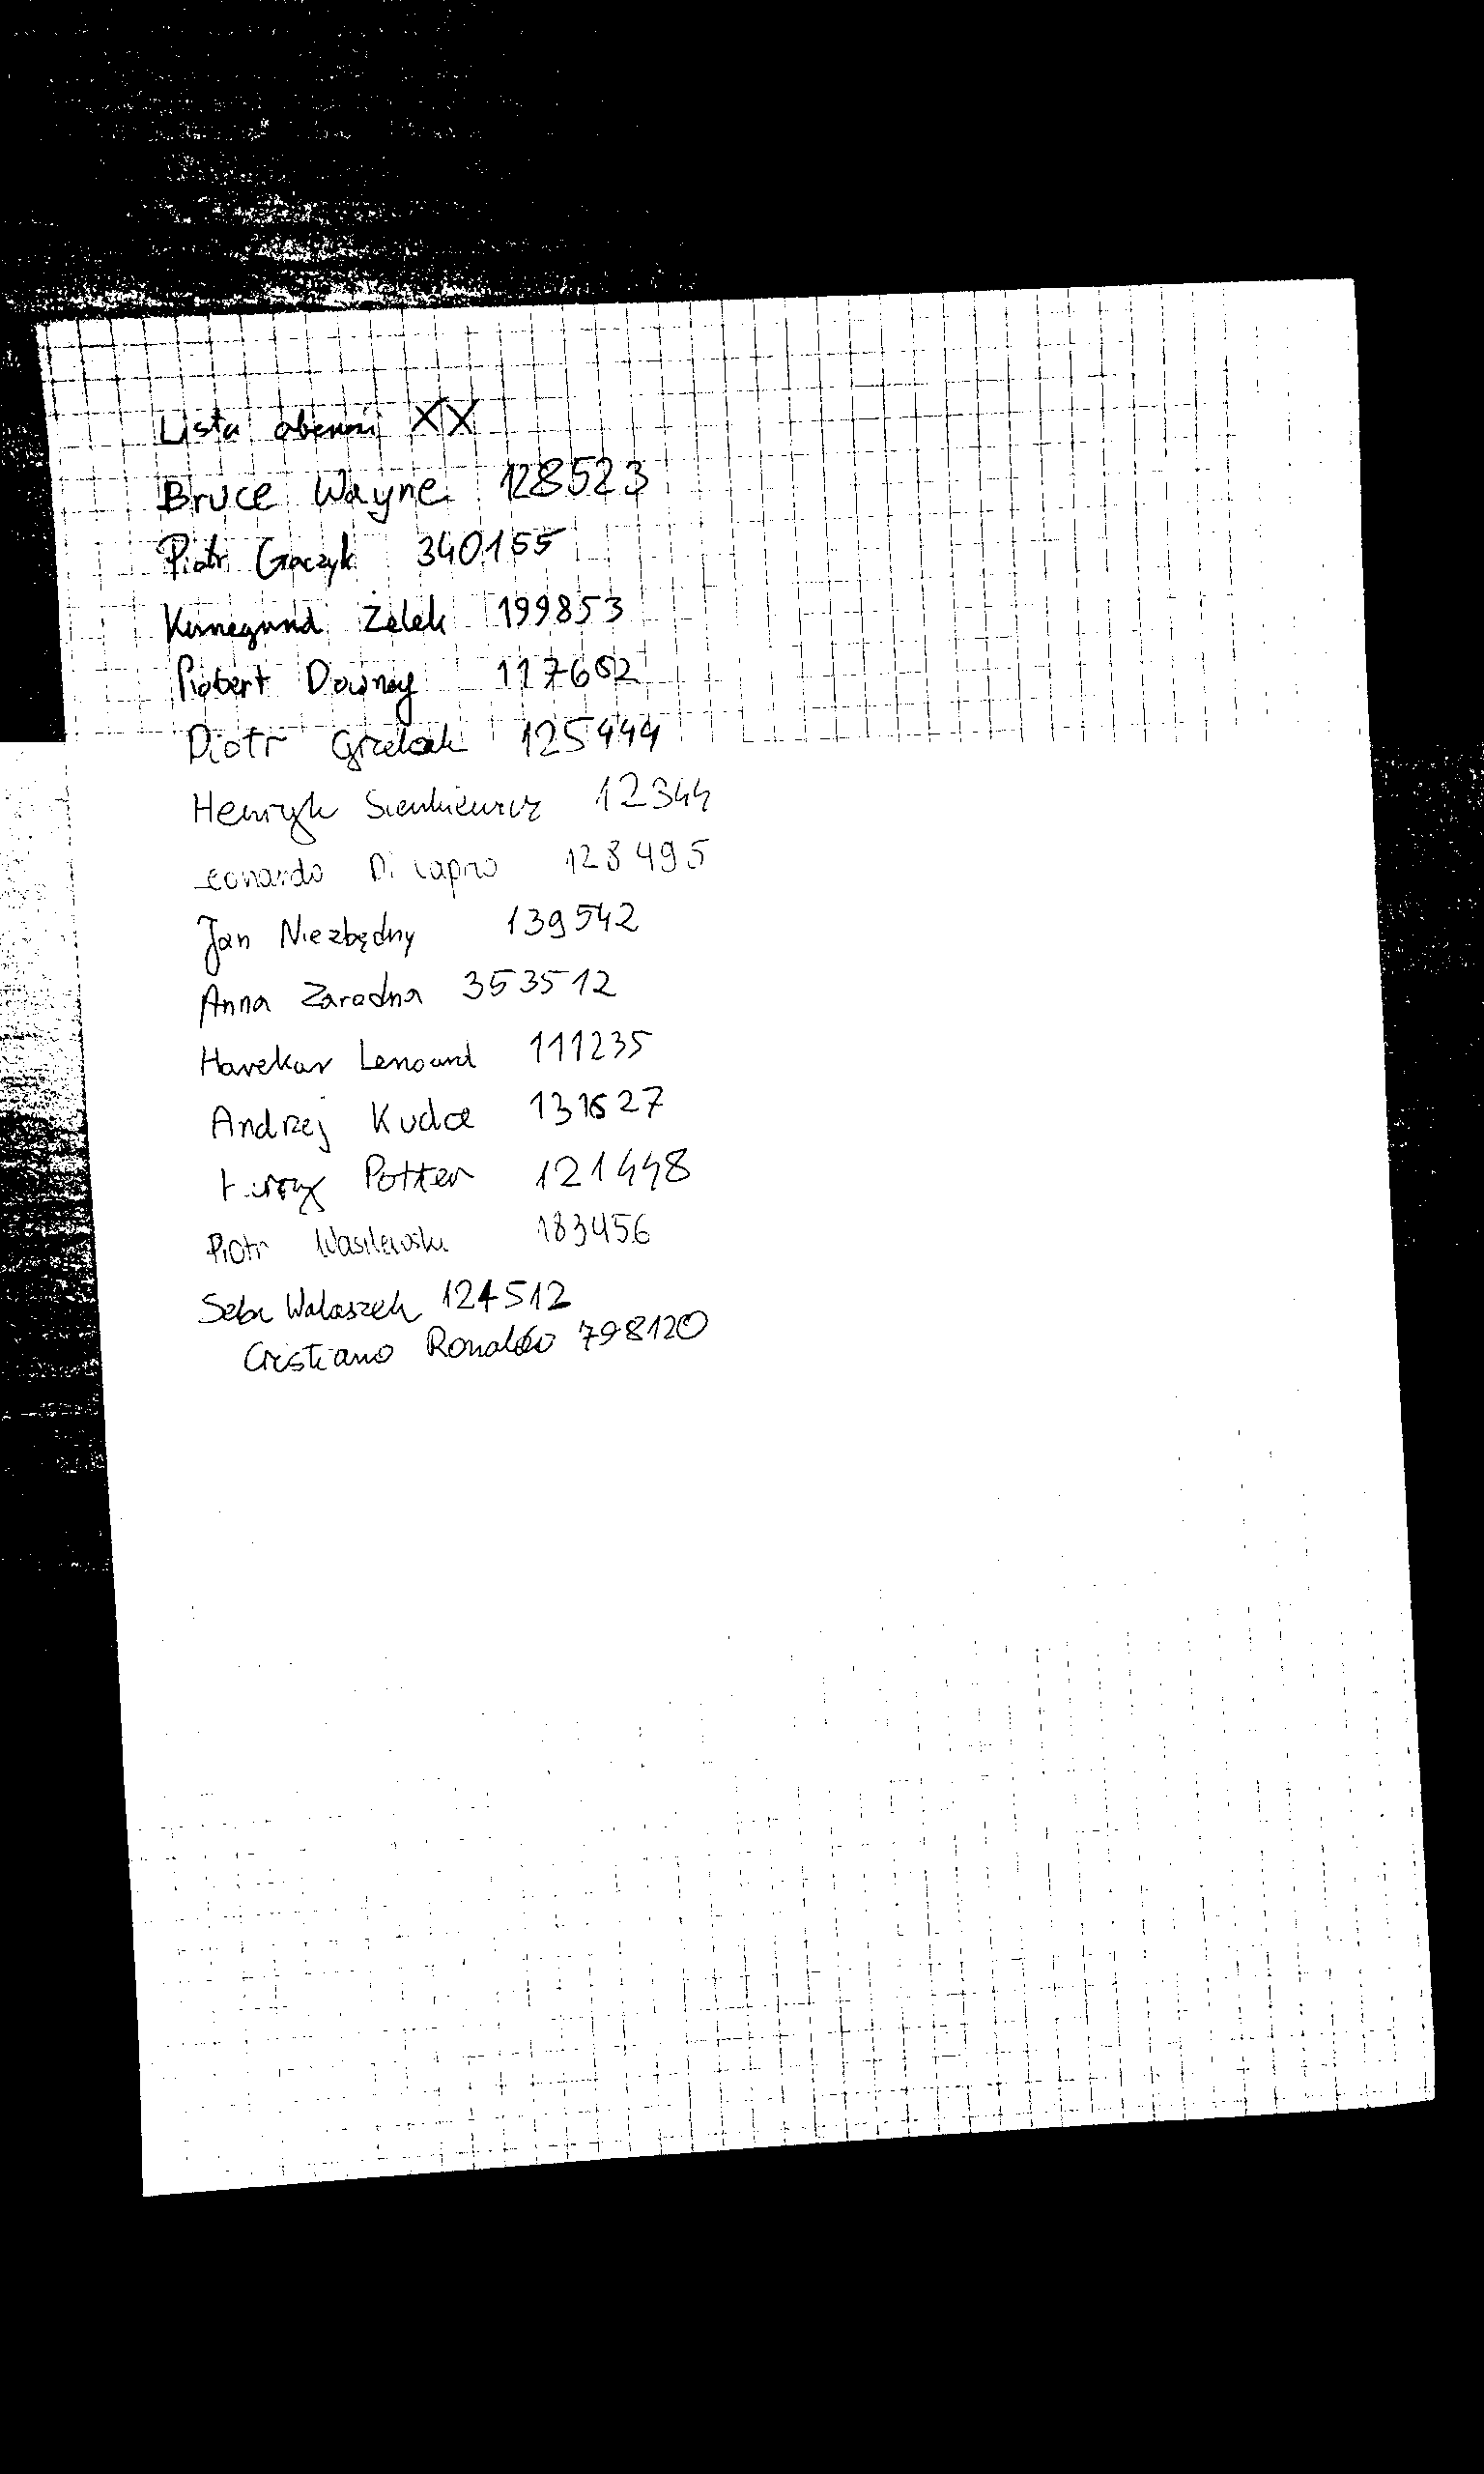 Lista obecności XX
Bruce Wayne 128523
Piotr Graczyk 340155
Kunegund Żelek 199853
Robert Downey 117602
Piotr Grzelak 125444
Henryk Sienkiewicz 12344
Leonardo Di Caprio 128495
Jan Niezbędny 139542
Anna Zaradna 353512
Havekar Lenoard 111235
Andrzej Kudła 131627
Potter 121448
Piotr Wasilewski 183456
Seba Walaszek 124512
Cristiano Ronaldo 798120